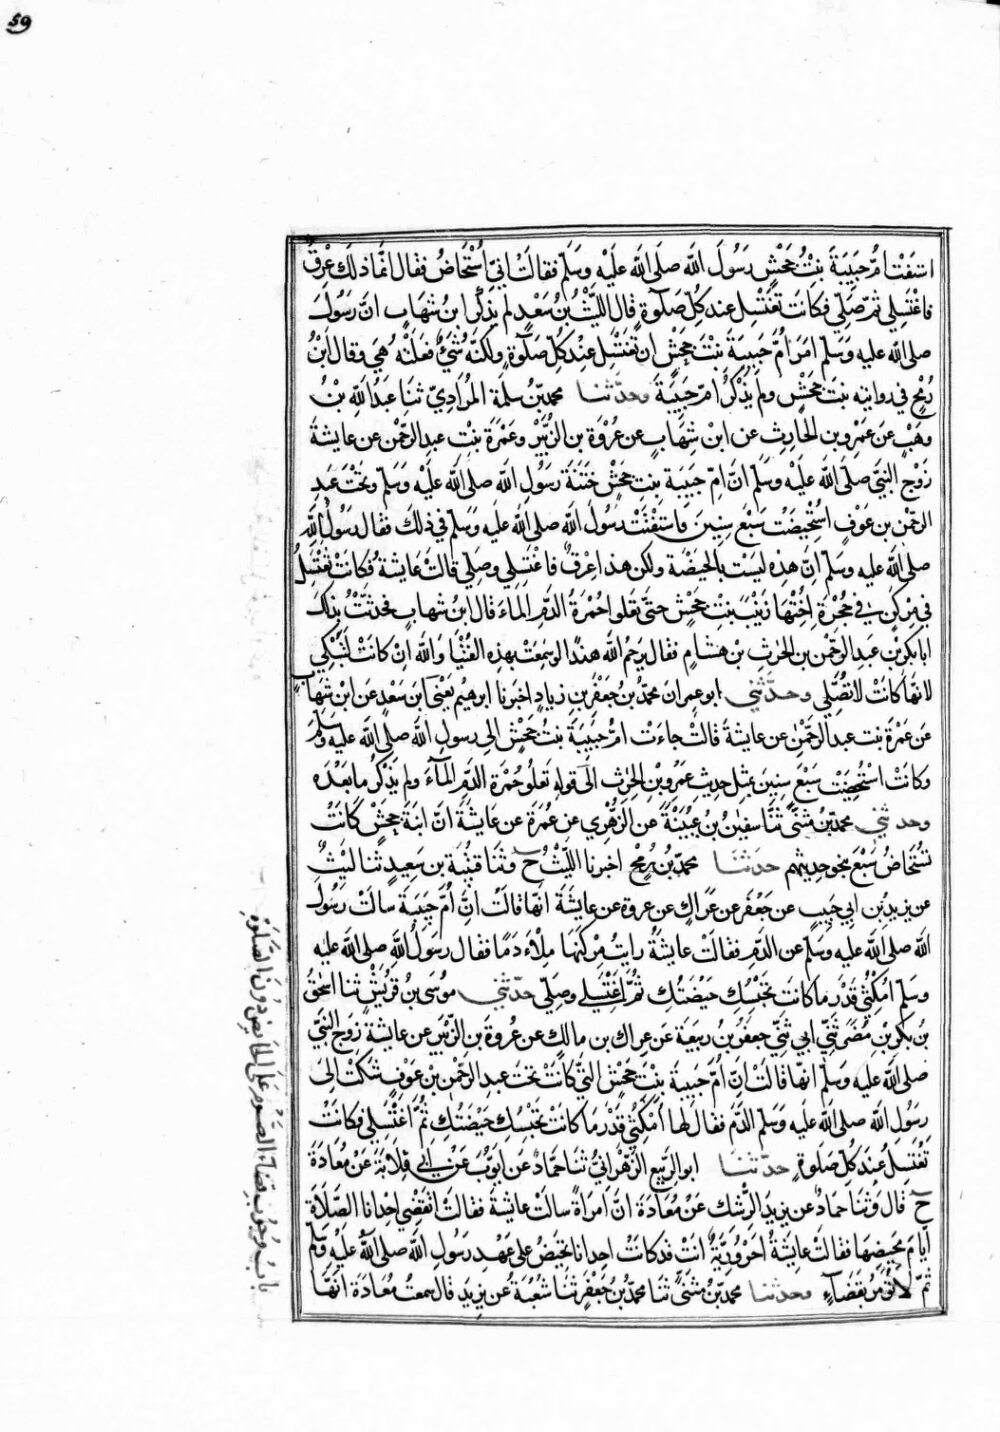 59
استفتت ام حبيبة بنت جحش رسول الله صلى الله عليه وسلم فقالت اني استحاض فقال انما ذلك عرق
فاغتسلي ثم صلي فكانت تغتسل عند كل صلوة قال الليث بن سعد لم يذكر ابن شهاب ان رسول
صلى الله عليه وسلم امر ام حبيبة بنت جحش ان تغتسل عند كل صلوة ولكنه شيء فعلته هي وقال ابن
رمح في روايته بنت جحش ولم يذكر ام حبيبة وحدثنا محمد بن سلمة المرادي ثنا عبد الله بن
وهب عن عمرو بن الحارث عن ابن شهاب عن عروة بن الزبير وعمرة بنت عبد الرحمن عن عايشة
زوج النبي صلى الله عليه وسلم ان ام حبيبة بنت جحش ختنة رسول الله صلى الله عليه وسلم وتحت عبد
الرحمن بن عوف استحيضت سبع سنين فاستفتت رسول الله صلى الله عليه وسلم في ذلك فقال رسول الله
صلى الله عليه وسلم ان هذه ليست بالحيضة ولكن هذا عرق فاغتسلي وصلي قالت عايشة فكانت تغتسل
في مركن في حجرة اختها زينب بنت جحش حتى تعلو حمرة الدم الماء قال ابن شهاب فحدثت بذلك
ابا بكر بن عبد الرحمن بن الحرث بن هشام فقال يرحم الله هندا لو سمعت بهذه الفتيا والله ان كانت لتبكي
لانها كانت لا تصلي وحدثني ابو عمران محمد بن جعفر بن زياد اخبرنا ابرهيم يعني ابن سعد عن ابن شهاب
عن عمرة بنت عبد الرحمن عن عايشة قالت جاءت ام حبيبة بنت جحش الى رسول الله صلى الله عليه وسلم
وكانت استحيضت سبع سنين بمثل حديث عمرو بن الحرث الى قوله تعلو حمرة الدم الماء ولم يذكر ما بعده
وحدثني محمد بن مثنى ثنا سفين بن عيينة عن الزهري عن عمرة عن عايشة ان ابنة جحش كانت
تستحاض سبع بنحو حديثهم حدثنا محمد بن رمح اخبرنا الليث ح وثنا قتيبة بن سعيد ثنا ليث
عن يزيد بن ابي حبيب عن جعفر عن عراك عن عروة عن عايشة انها قالت ان ام حبيبة سالت رسول
الله صلى الله عليه وسلم عن الدم فقالت عايشة رايت مركنها ملاء دما فقال رسول الله صلى الله عليه
وسلم امكثي قدر ما كانت تحبسك حيضتك ثم اغتسلي وصلي حدثني موسى بن قريش ثنا اسحق
بن بكر بن مضر ثني ابي ثني جعفر بن ربيعة عن عراك بن مالك عن عروة بن الزبير عن عايشة زوج النبي
صلى الله عليه وسلم انها قالت ان ام حبيبة بنت جحش التي كانت تحت عبد الرحمن بن عوف شكت الى
رسول الله صلى الله عليه وسلم الدم فقال لها امكثي قدر ما كانت تحبسك حيضتك ثم اغتسلي فكانت
تغتسل عند كل صلوة حدثنا ابو الربيع الزهراني ثنا حماد عن ايوب عن ابي قلابة عن معاذة
ح قال وثنا حماد عن يزيد الرشك عن معاذة ان امراة سالت عايشة فقالت اتقضي احدانا الصلاة
ايام محيضها فقالت عايشة احرورية انت قد كانت احدانا تحيض على عهد رسول الله صلى الله عليه وسلم
ثم لا تؤمر بقضاء وحدثنا محمد بن مثنى ثنا محمد بن جعفر ثنا شعبة عن يزيد قال سمعت معاذة انها
باب وجوب قضاء الصوم على الحايض دون الصلوة